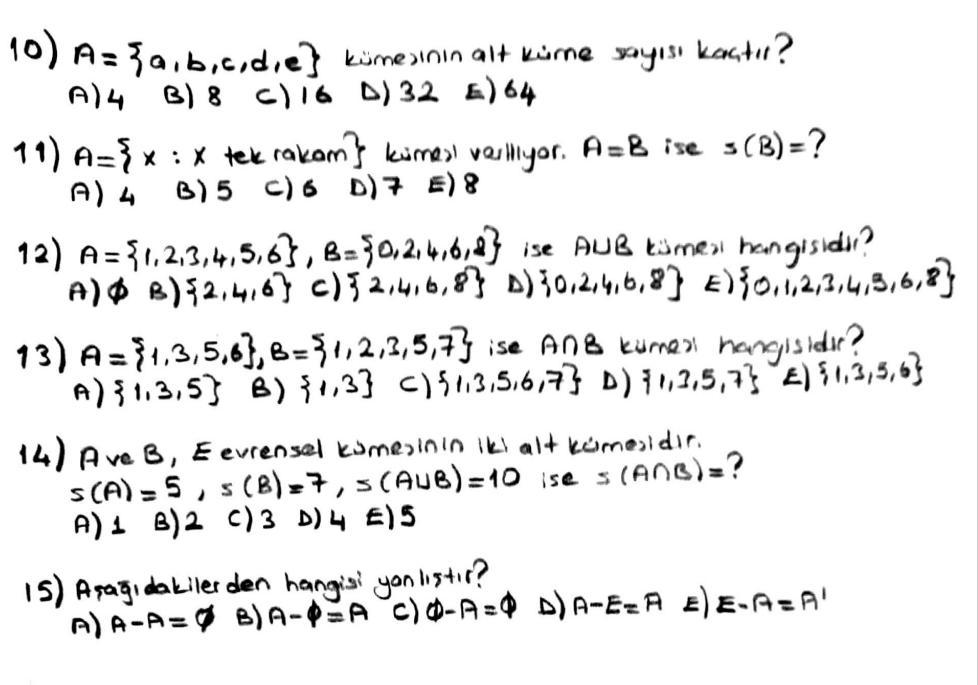 10) A={a,b,c,d,e} kümesinin alt küme sayısı kaçtır?
A)4 B)8 C)16 D)32 E)64
11) A={x : x tek rakam} kümesi veriliyor. A=B ise s(B)=?
A) 4 B)5 C)6 D)7 E)8
12) A={1,2,3,4,5,6}, B={0,2,4,6,8} ise AUB kümesi hangisidir?
A)∅ B){2,4,6} C){2,4,6,8} D){0,2,4,6,8} E){0,1,2,3,4,5,6,8}
13) A={1,3,5,6}, B={1,2,3,5,7} ise A∩B kümesi hangisidir?
A){1,3,5} B) {1,3} C){1,3,5,6,7} D) {1,2,5,7} E){1,3,5,6}
14) A ve B, E evrensel kümesinin iki alt kümesidir.
s(A)=5, s(B)=7, s(AUB)=10 ise s(A∩B)=?
A) 1 B)2 C)3 D)4 E)5
15) Aşağıdakilerden hangisi yanlıştır?
A) A-A=∅ B)A-∅=A C)∅-A=∅ D)A-E=A E)E-A=A'